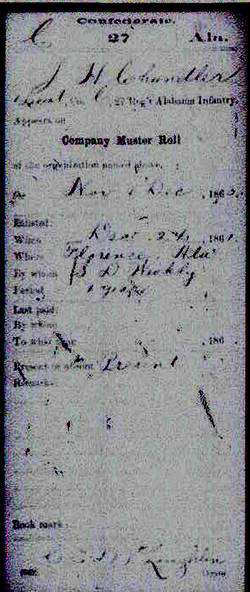 Confederate.
C 27 Ala.
J H Chandler
Co. C, 27 Reg't Alabama Infantry.
Appears on
Company Muster Roll
of the organization named above,
for Nov & Dec, 186
Enlisted:
When Dec 24, 1861.
Where Florence, Ala
By whom S D Weakley
Period 1 year
Last paid:
By whom
To what time , 186 .
Present or absent Present
Remarks:
Book mark: